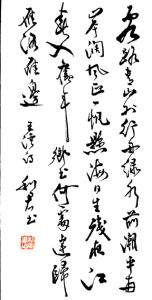 客路青山外行舟綠水前潮平兩
岸闊風正一帆懸海日生殘夜江
春入舊年鄉書何處達歸
雁洛陽邊 王灣詩